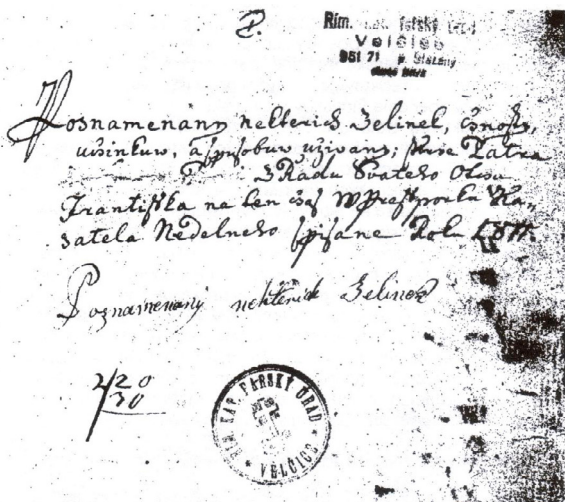 P.
Rím. kat. farský úrad
Velčice
951 71 p. Sľažany
Posnamenany nekterich Zelinek, čsnosti,
učinkuw, a spusobuw uživany; skrse Patra
z Radu Svateho Otca
Frantisska na ten čas W Presporku Ka-
zatela Nedelneho spisane Roku
Poznamenany nekterich Zelinek
2/20
30
RÍM. KAT. FARSKÝ ÚRAD
* VELČICE *